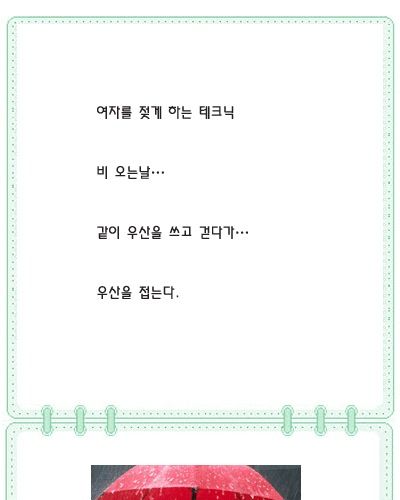 여자를 젖게 하는 테크닉
비 오는날…
같이 우산을 쓰고 걷다가…
우산을 접는다.